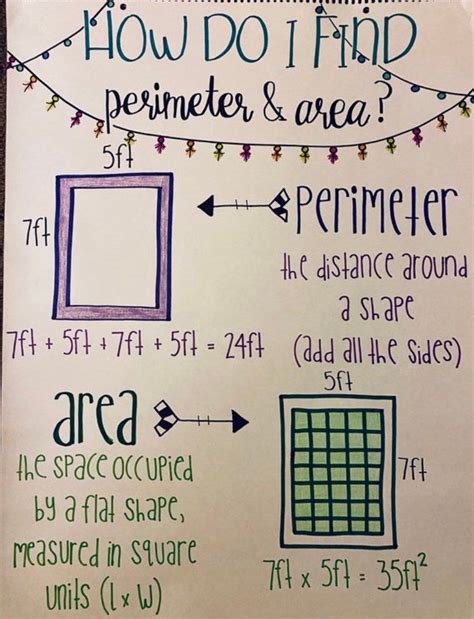 HOW DO I FIND
perimeter & area?
5ft
7ft
perimeter
the distance around
a shape
(add all the sides)
7ft + 5ft + 7ft + 5ft = 24ft
area
the space occupied
by a flat shape,
measured in square
units (l x w)
5ft
7ft
7ft x 5ft = 35ft²